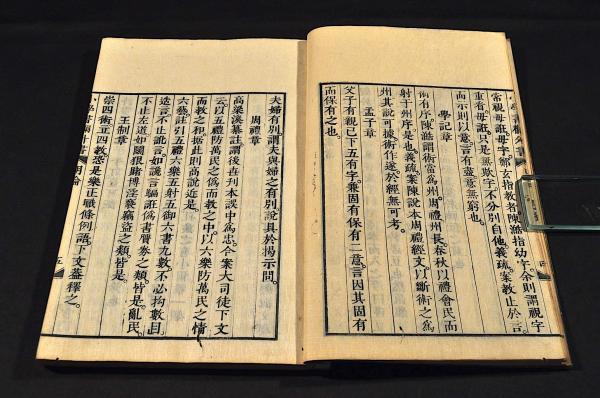 常視毋誑。毋字鄭玄指教指陳澔指幼字。余則謂視字
重看。毋誑只是無欺字不分別自他。義疏。案教止於言。
而示則以意。言有盡。意無窮也。
學記章
術有序。陳澔謂術當為州。周禮州長春秋以禮會民而
射于州序是也。義疏。案陳說本周禮經文。以斷術之為
州。其說可據。術作遂。於經無可考。
孟子章
父子有親已下五有字。兼固有保有二意。言因其固有
而保有之也。
夫婦有別。謂夫與婦之有別。說具於揭示問。
周禮章
高梁溪註謂後世刊本誤中為忠。今案大司徒下文
云。以五禮防萬民之偽。而教之中。以六樂防萬民之情
而教之和。据此則高說近是。
六藝。註引五禮六樂五射五御六書九數。不必拘數目。
造言不止訛言。如謊言騙誑偽書贗券之類。皆是。亂民。
不止左道。如鬭狠賭博淫褻竊盜之類。皆是。
王制章
崇四術立四教。恐是樂正職條例語。下文蓋釋之。
五